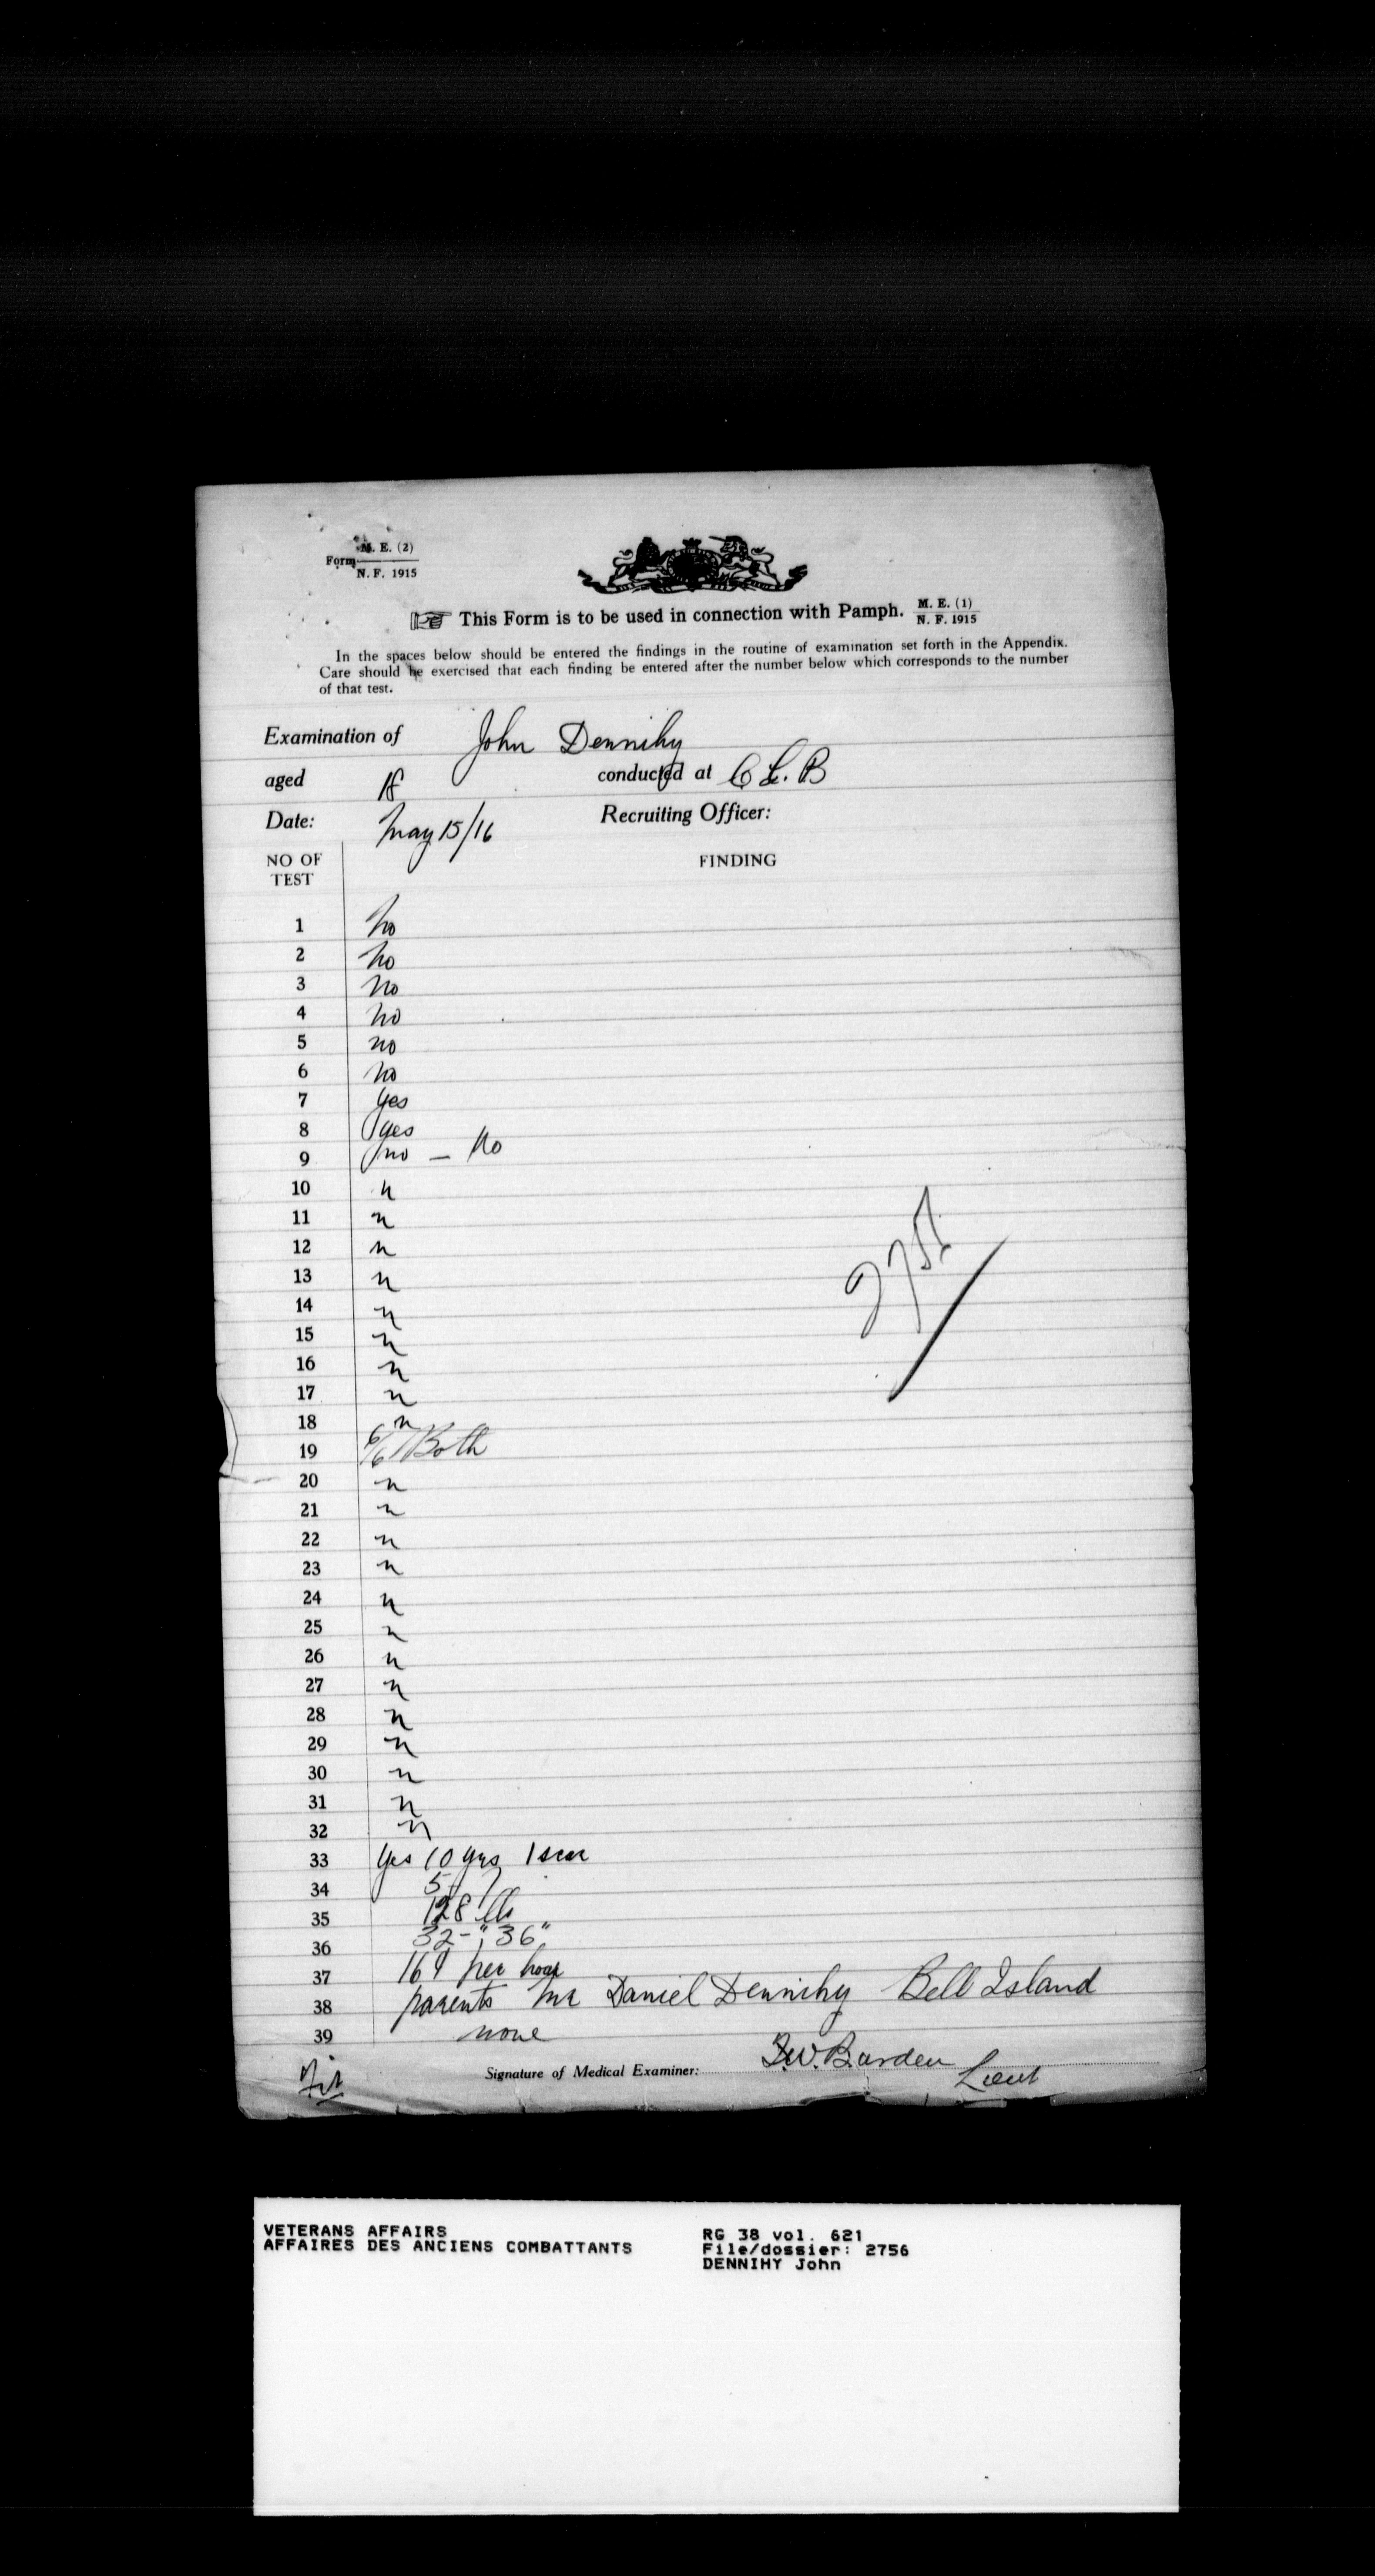 Form M. E. (2)
N. F. 1915
This Form is to be used in connection with Pamph. M. E. (1)
N. F. 1915
In the spaces below should be entered the findings in the routine of examination set forth in the Appendix.
Care should be exercised that each finding be entered after the number below which corresponds to the number
of that test.
Examination of John Dennihy
aged 18 conducted at C L. B
Date: May 15/16 Recruiting Officer:
NO OF TEST FINDING
1 No
2 No
3 No
4 No
5 no
6 No
7 yes
8 yes
9 no — No
10 n
11 n
12 n
13 n
14 n
15 n
16 n
17 n
18 n
19 6/6 Both
20 n
21 n
22 n
23 n
24 n
25 n
26 n
27 n
28 n
29 n
30 n
31 n
32 n
33 Yes 10 yrs 1 scar
34 5 / 7
35 128 lbs
36 32-"; 36"
37 16¢ per hour
38 parents Mr Daniel Dennihy Bell Island
39 none
Fit Signature of Medical Examiner: Burden
Lieut
VETERANS AFFAIRS
AFFAIRES DES ANCIENS COMBATTANTS
RG 38 vol. 621
File/dossier: 2756
DENNIHY John